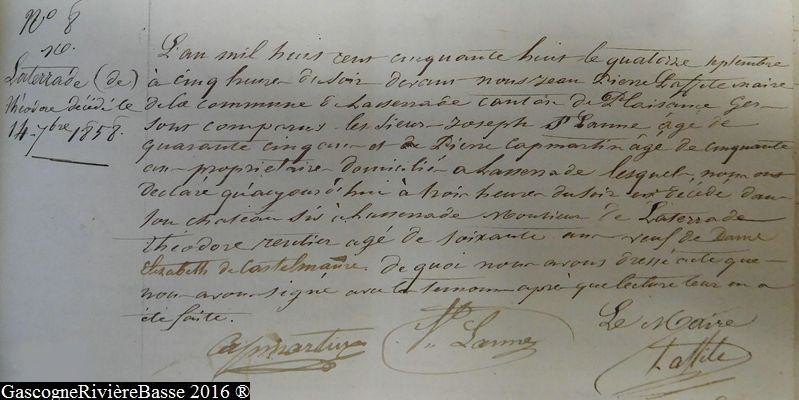 N° 8
Laterrade (de)
Théodore décédé le
14 7bre 1858.
L'an mil huit cent cinquante huit le quatorze septembre
à cinq heures du soir devant nous Jean Pierre Laffite maire
de la commune de Lasserade canton de Plaisance Gers
sont comparus les sieurs Joseph St Lanne âgé de
quarante cinq ans et de Pierre Capmartin âgé de cinquante
ans propriétaires domiciliés à Lasserade lesquels nous ont
déclaré qu'aujourd'hui à trois heures du soir est décédé dans
son chateau sis à Lasserade Monsieur de Laterrade
Théodore rentier agé de soixante ans veuf de Dame
Elizabeth de Castelmaure. de quoi nous avons dressé acte que
nous avons signé avec les temoins après que lecture leur en a
été faite.
Capmartin
St Lanne
Le Maire
Laffite
GascogneRivièreBasse 2016 ®